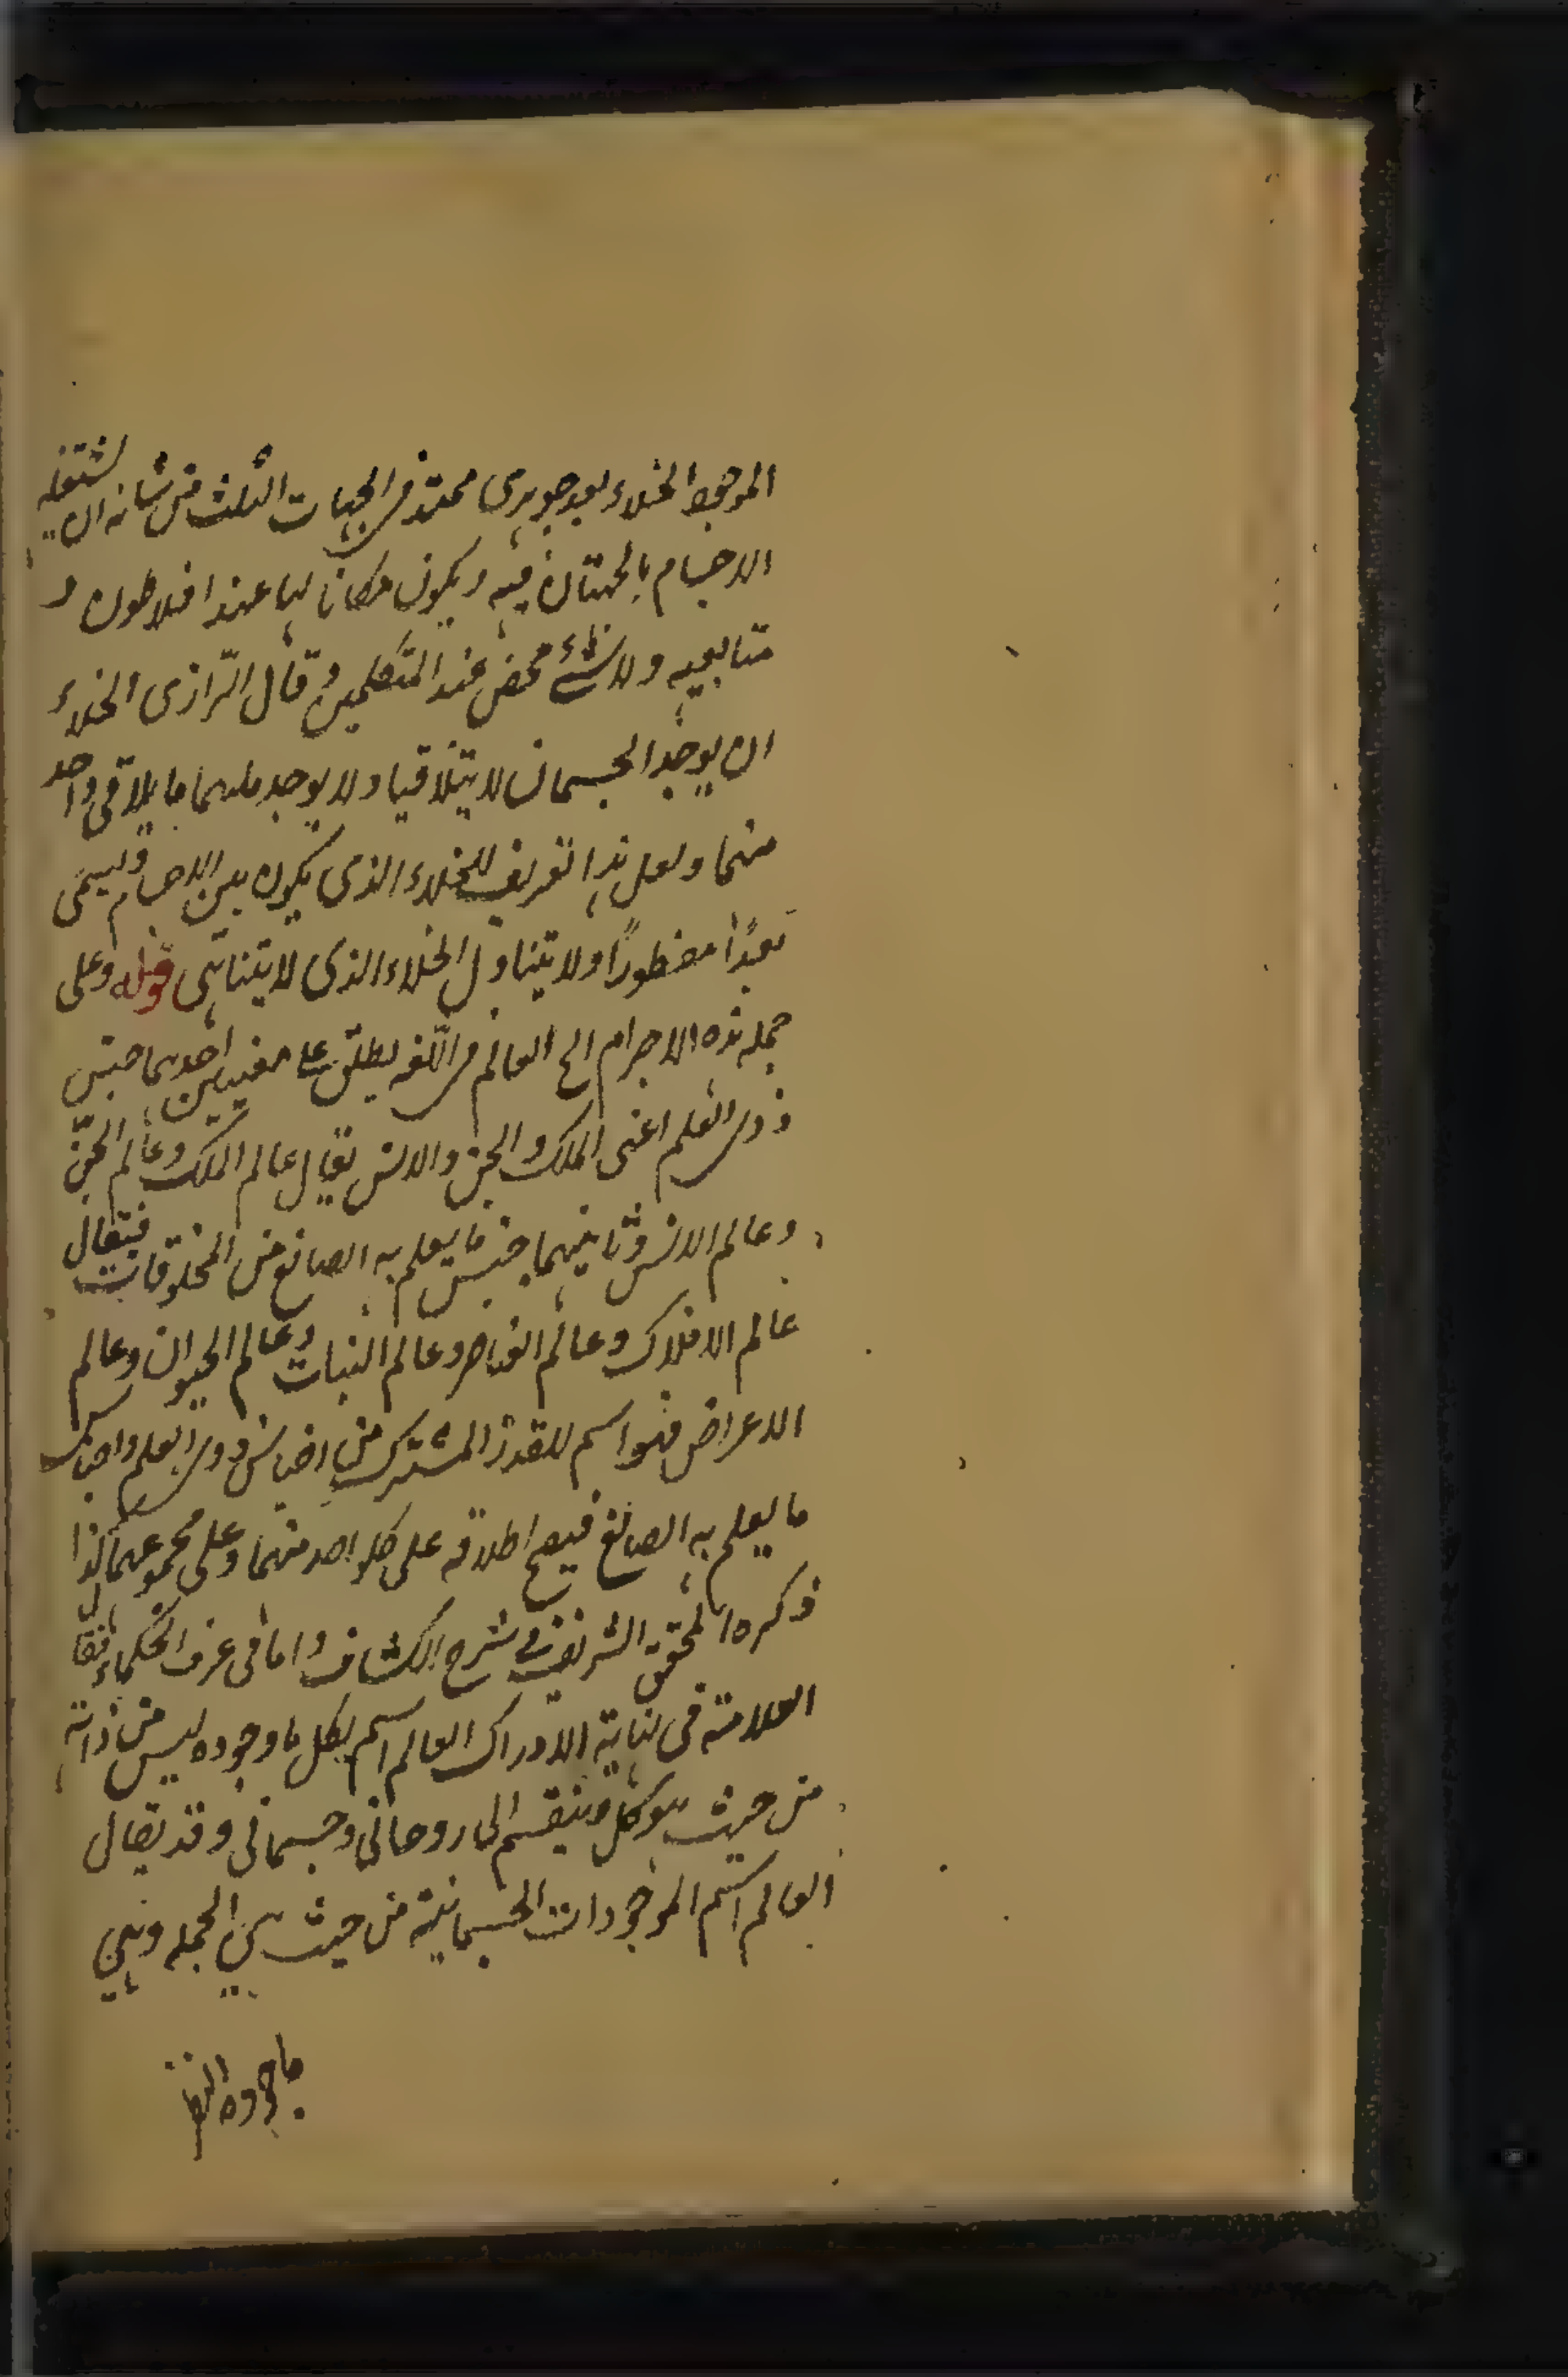 الموجود الخلاء بعد جوهرى ممتد فى الجهات الثلث من شانه ان يشتغله
الاجسام بالحصول فيه ويكون مكانا لها عند افلاطون و
متابعيه ولا شئ محض عند المتكلمين وقال الرازى الخلاء
ان يوجد الجسمان لا يتلاقيا ولا يوجد بينهما ما يلاقى واحد
منهما ولعل هذا تعريف للخلاء الذى يكون بين الاجسام ويسمى
بعدًا مفطورًا ولا يتناول الخلاء الذى لا يتناهى قوله وعلى
جمله هذه الاجرام الخ العالم فى اللغه يطلق على معنيين احدهما جنس
ذوى العلم اعنى الملك والجن والانس يقال عالم الملك وعالم الجنّ
وعالم الانس وثانيهما جنس ما يعلم به الصانع من المخلوقات فيقال
عالم الافلاك وعالم العناصر وعالم النبات وعالم الحيوان وعالم
الاعراض فهو اسم للقدر المشترك من اجناس ذوى العلم واجناس
ما يعلم به الصانع فيصح اطلاقه على كل واحد منهما وعلى مجموعهما كذا
ذكره المحقق الشريف فى شرح الكشاف واما فى عرف الحكماء فقال
العلامة فى نهاية الادراك العالم اسم لكل ما وجوده ليس من ذاته
من حيث هو كل وينقسم الى روحانى وجسمانى وقد يقال
العالم اسم الموجودات الجسمانية من حيث هى الجمله وهى
ما حوده